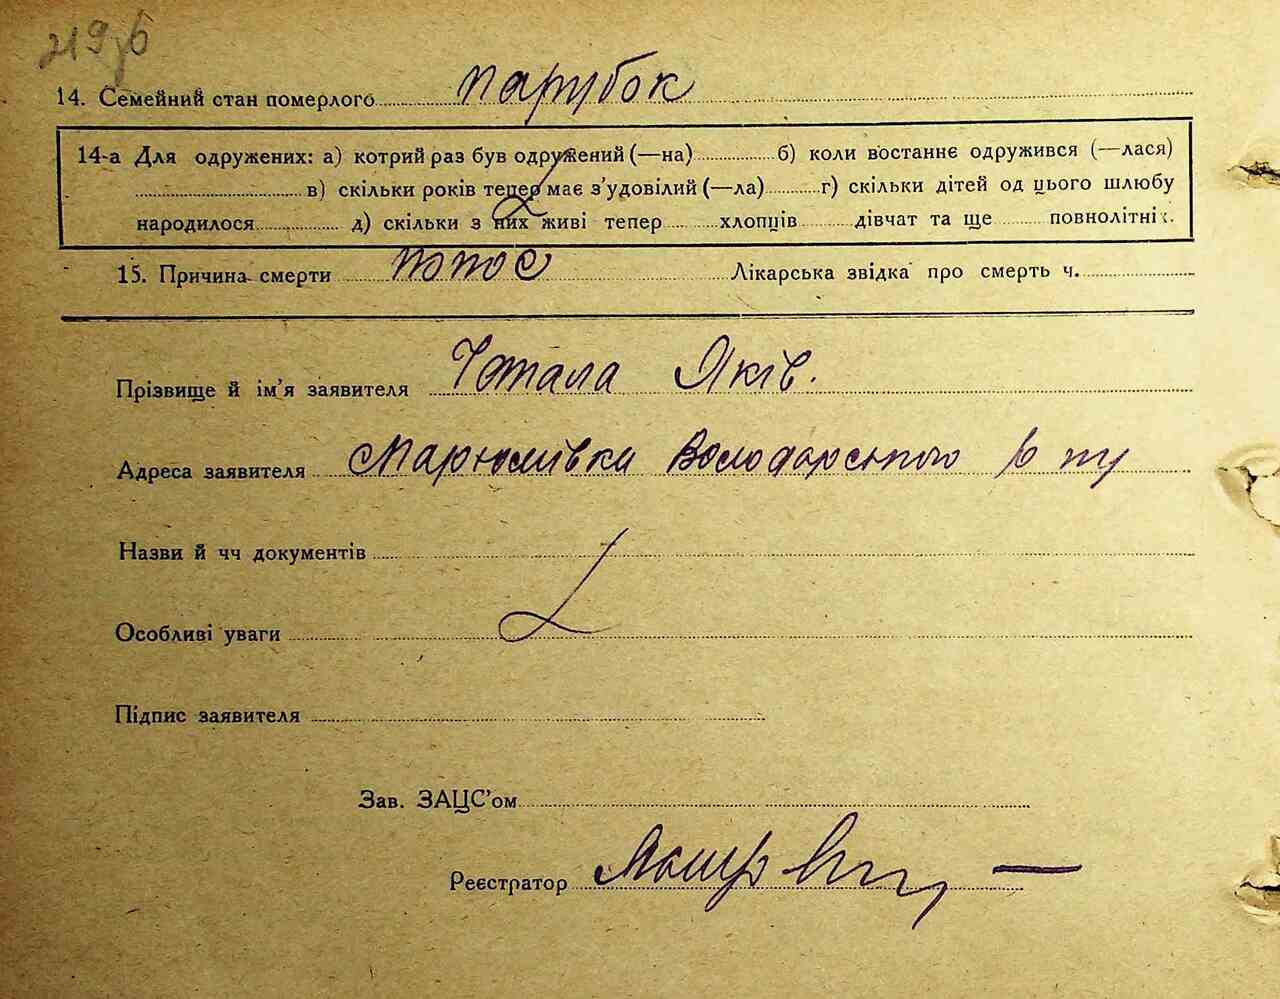 219 зб
14. Семейний стан померлого парубок
14-а Для одружених: а) котрий раз був одружений (—на) б) коли востаннє одружився (—лася)
в) скільки років тепер має з'удовілий (—ла) г) скільки дітей од цього шлюбу
народилося д) скільки з них живі тепер хлопців дівчат та ще повнолітніх.
15. Причина смерти Лікарська звідка про смерть ч.
Прізвище й ім'я заявителя Яків.
Адреса заявителя Володарського р ну
Назви й чч документів
Особливі уваги
Підпис заявителя
Зав. ЗАЦС'ом
Реєстратор